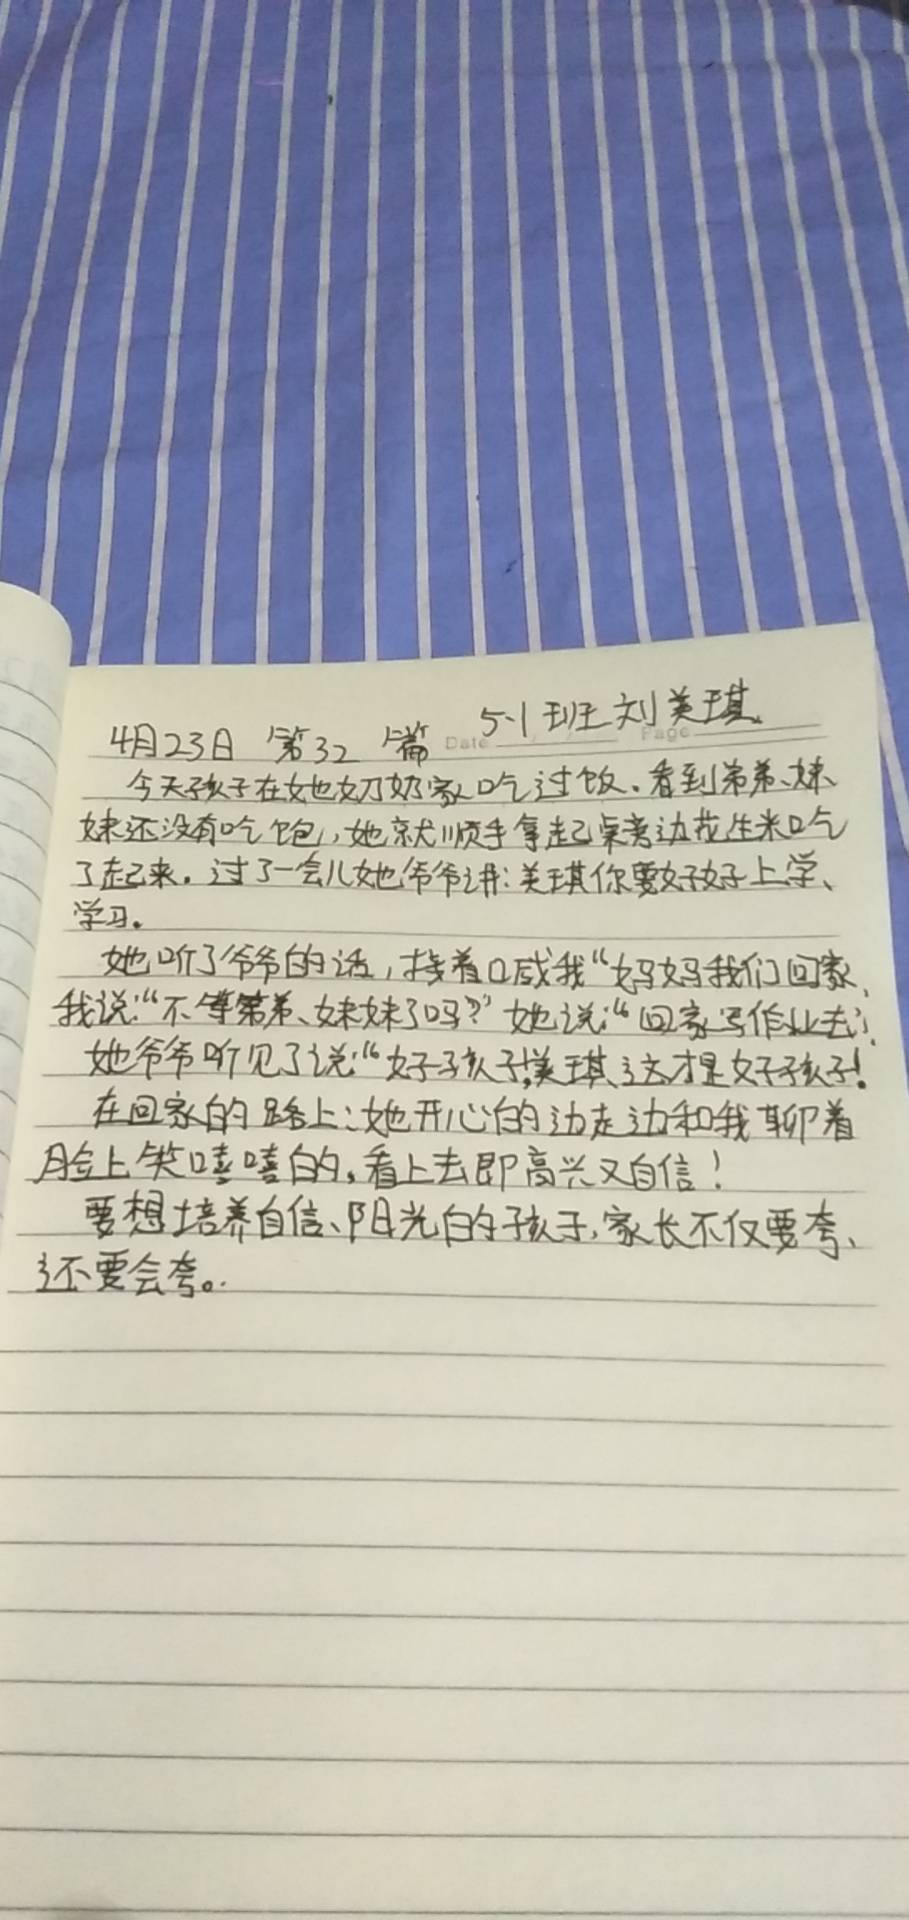 5-1班刘美琪
4月23日 第32篇 Date Page
今天孩子在她奶奶家吃过饭。看到弟弟、妹
妹还没有吃饱,她就顺手拿起桌旁边花生米吃
了起来。过了一会儿她爷爷讲:美琪你要好好上学、
学习。
她听了爷爷的话,接着口咸我“妈妈我们回家,
我说:“不等弟弟、妹妹了吗?”她说:“回家写作业去”,
她爷爷听见了说:“好孩子,美琪这才是好孩子!
在回家的路上:她开心的边走边和我聊着
脸上笑嘻嘻的。看上去即高兴又自信!
要想培养自信、阳光的孩子,家长不仅要夸、
还要会夸。